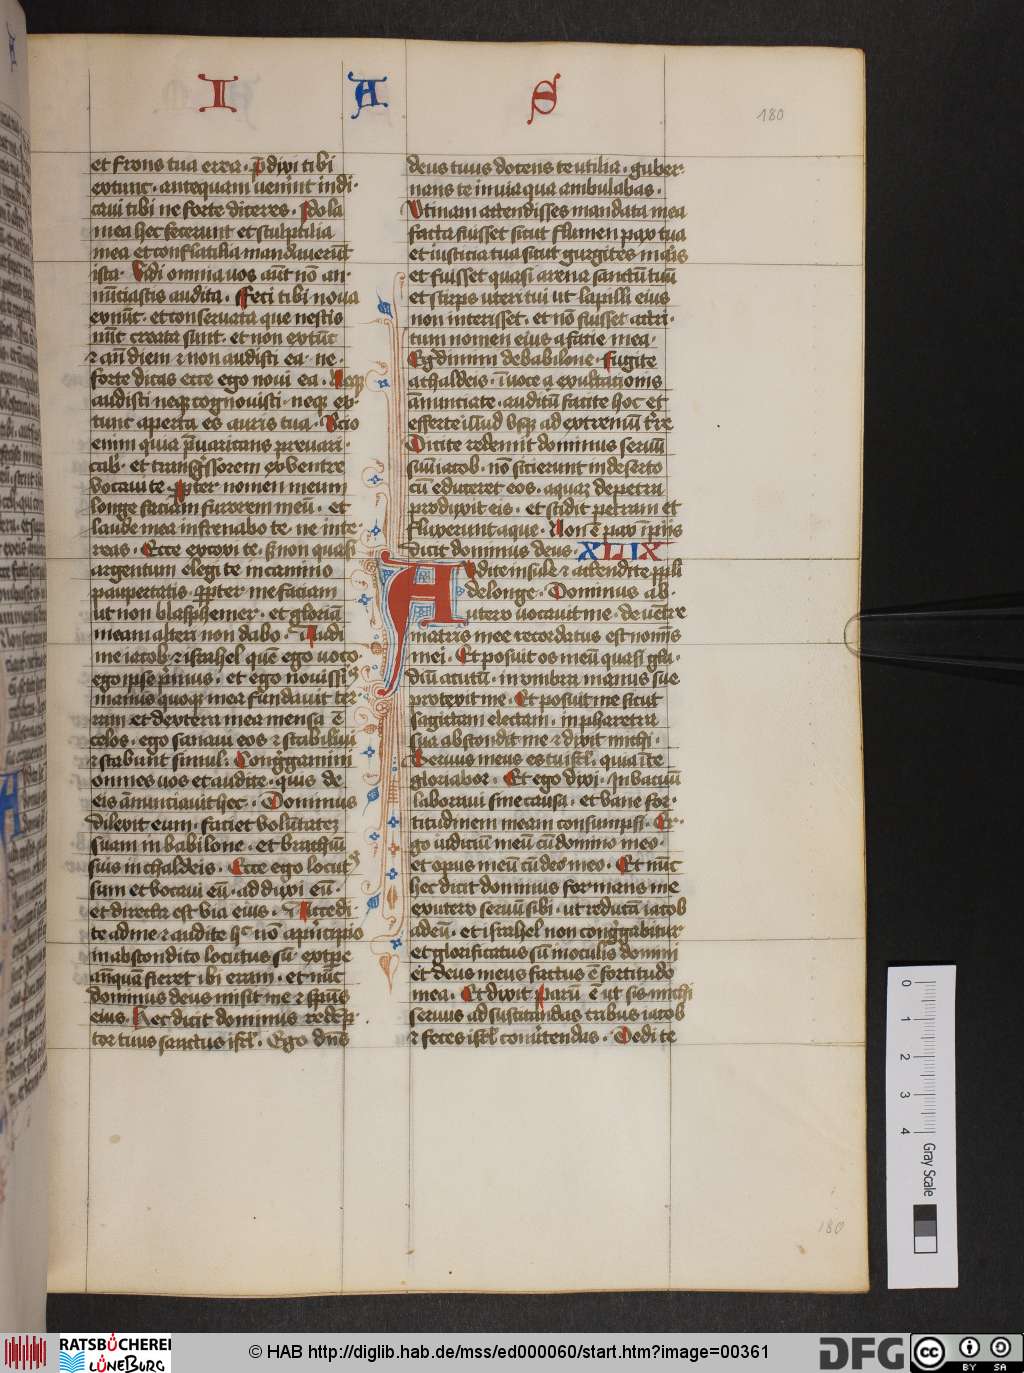 I A S
180
et frons tua erea · p̄dixi tibi
extunc · antequam venirent indi·
caui tibi ne forte diceres · Idola
mea hec fecerunt et sculptilia
mea et conflatilia mandauerūt
ista · Vidi omnia vos aūt nō an·
nūciastis audita · Feci tibi noua
exnūc · et conseruata que nescis
nūc creata sunt · et non extūc
⁊ añ diem ⁊ non audisti ea · ne·
forte dicas ecce ego noui ea · Neqꝫ
audisti neqꝫ cognouisti · neqꝫ ex·
tunc aperta es auris tua · Scio
enim quia p̄uaricans preuari·
cab̕ · et transg̕ssorem ex ventre
vocaui te · Propter nomen meum
longe faciam furorem meū · et
laude mea infrenabo te · ne inte·
reas · Ecce excoxi te · sꝫ non quasi
argentum elegi te in camino
paupertatis · propter me faciam
ut non blasphemer · et gloriā
meam alteri non dabo · Audi
me iacob ⁊ israhel quē ego voco·
ego ipse primus · et ego nouissi⁹
manus quoqꝫ mea fundauit ter·
ram et dextera mea mensa ē
celos · ego sanaui eos ⁊ stabiliui
⁊ stabunt simul · Cong̕gamini
omnes vos et audite · quis de
eis ānunciauit hec · Dominus
dilexit eum · faciet volūtatez
suam in babilone · et brachiū
suū in chaldeis · Ecce ego locut⁹
sum et vocaui eū · adduxi eū ·
et directa est via eius · Accedi·
te ad me ⁊ audite hͨ nō a principio
in abscondito locutus sū · ex tp̄e
añquā fieret ibi eram · et nūc
dominus deus misit me ⁊ sp̄us
eius · Hec dicit dominus redēp·
tor tuus sanctus isrl̕ · Ego dn̄s
deus tuus docens te utilia · guber·
nans te in via qua ambulabas ·
Vtinam attendisses mandata mea
facta fuisset sicut flumen pax tua
et iusticia tua sicut gurgites maris
et fuisset quasi arena semen tuū
et stirps uteri tui ut lapilli eius
non interisset · et nō fuisset attri·
tum nomen eius a facie mea ·
Egredimini de babilone · fugite
a chaldeis · in voce exultationis
ānunciate · auditū facite hoc et
efferte illud vsqꝫ ad extremū t̕re
Dicite redemit dominus seruū
suū iacob · nō sicierunt in deserto
cū educeret eos · aquaz de petra
produxit eis · et scidit petram et
fluxerunt aque · Non ē pax impijs
dicit dominus deus · XLIX
Audite insule ⁊ attendite ppl̕i
de longe · Dominus ab·
utero vocauit me · de uētre
matris mee recordatus est nomīs
mei · Et posuit os meū quasi gla·
diū acutū · in vmbra manus sue
protexit me · Et posuit me sicut
sagittam electam · in pharetra
sua abscondit me ⁊ dixit michi ·
Seruus meus es tu isrl̕ · quia ī te
gloriabor · Et ego dixi · In vacuū
laboraui sine causa · et vane for·
titudinem meam consumpsi · Er·
go iudiciū meū cū domino meo·
et opus meū cū deo meo · Et nūc
hec dicit dominus formans me
ex utero seruū sibi · ut reducā iacob
ad eū · et israhel non cong̕gabitur
et glorificatus sū in oculis domini
et deus meus factus ē fortitudo
mea · Et dixit Parū ē ut sis michi
seruus ad suscitandas tribus iacob
⁊ feces isrl̕ conu̕tendas · Dedi te
180
0 1 2 3 4
Gray Scale
RATSBÜCHEREI LÜNEBURG
© HAB http://diglib.hab.de/mss/ed000060/start.htm?image=00361
DFG
cc BY SA